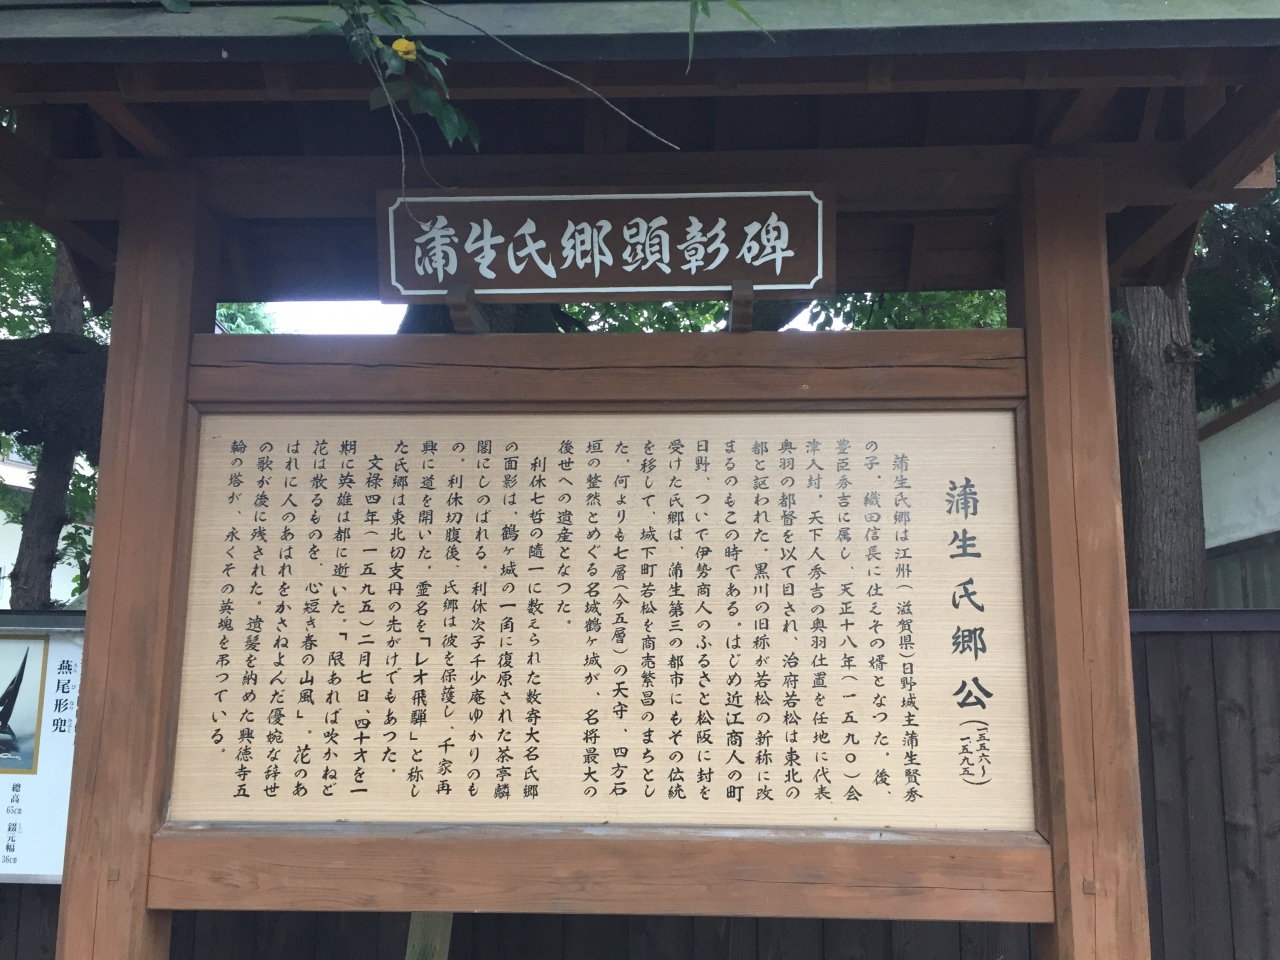 蒲生氏郷顕彰碑
蒲生氏郷公(一五五六〜一五九五)
蒲生氏郷は江州(滋賀県)日野城主蒲生賢秀
の子。織田信長に仕えその婿となつた。後、
豊臣秀吉に属し、天正十八年(一五九〇)会
津入封。天下人秀吉の奥羽仕置を任地に代表
奥羽の都督を以て目され、治府若松は東北の
都と謳われた。黒川の旧称が若松の新称に改
まるのもこの時である。はじめ近江商人の町
日野、ついで伊勢商人のふるさと松阪に封を
受けた氏郷は、蒲生第三の都市にもその伝統
を移して、城下町若松を商売繁昌のまちとし
た。何よりも七層(今五層)の天守、四方石
垣の整然とめぐる名城鶴ヶ城が、名将最大の
後世への遺産となつた。
利休七哲の随一に数えられた数寄大名氏郷
の面影は、鶴ヶ城の一角に復原された茶亭麟
閣にしのばれる。利休次子千少庵ゆかりのも
の。利休切腹後、氏郷は彼を保護し、千家再
興に道を開いた。霊名を「レオ飛騨」と称し
た氏郷は東北切支丹の先がけでもあつた。
文禄四年(一五九五)二月七日、四十才を一
期に英雄は都に逝いた。「限あれば吹かねど
花は散るものを、心短き春の山風」。花のあ
はれに人のあはれをかさねよんだ優婉な辞世
の歌が後に残された。遺髪を納めた興徳寺五
輪の塔が、永くその英魂を弔つている。
燕尾形兜
總高 65cm
錣元幅 36cm